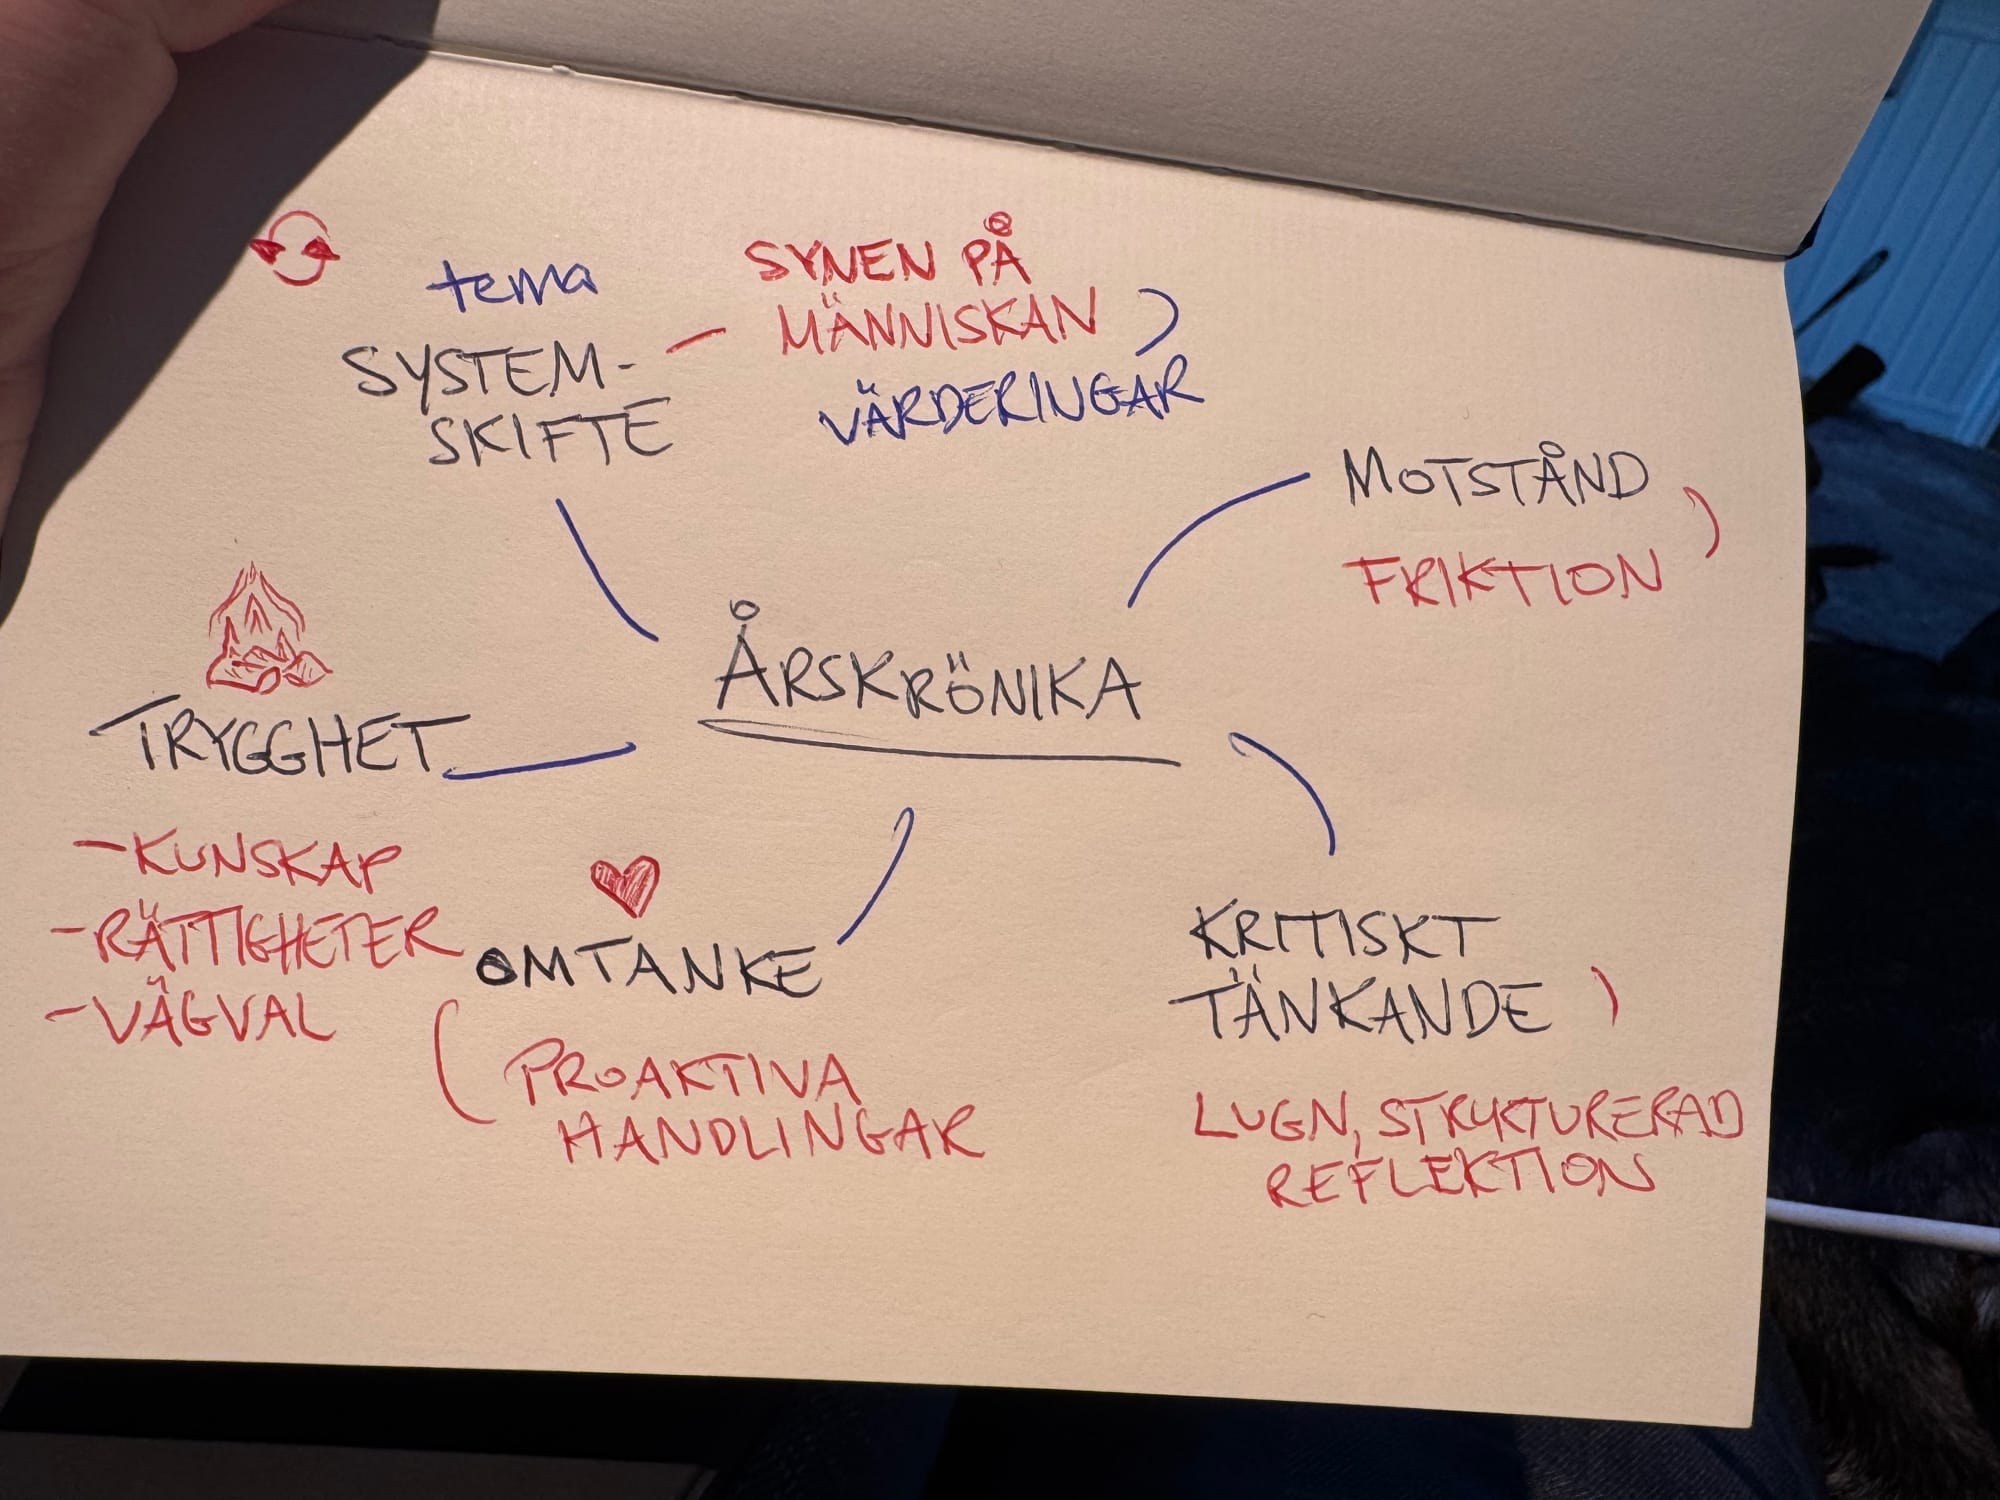 tema
SYSTEM-
SKIFTE
SYNEN PÅ
MÄNNISKAN
VÄRDERINGAR
MOTSTÅND
FRIKTION
ÅRSKRÖNIKA
TRYGGHET
- KUNSKAP
- RÄTTIGHETER
- VÄGVAL
OMTANKE
PROAKTIVA
HANDLINGAR
KRITISKT
TÄNKANDE
LUGN, STRUKTURERAD
REFLEKTION